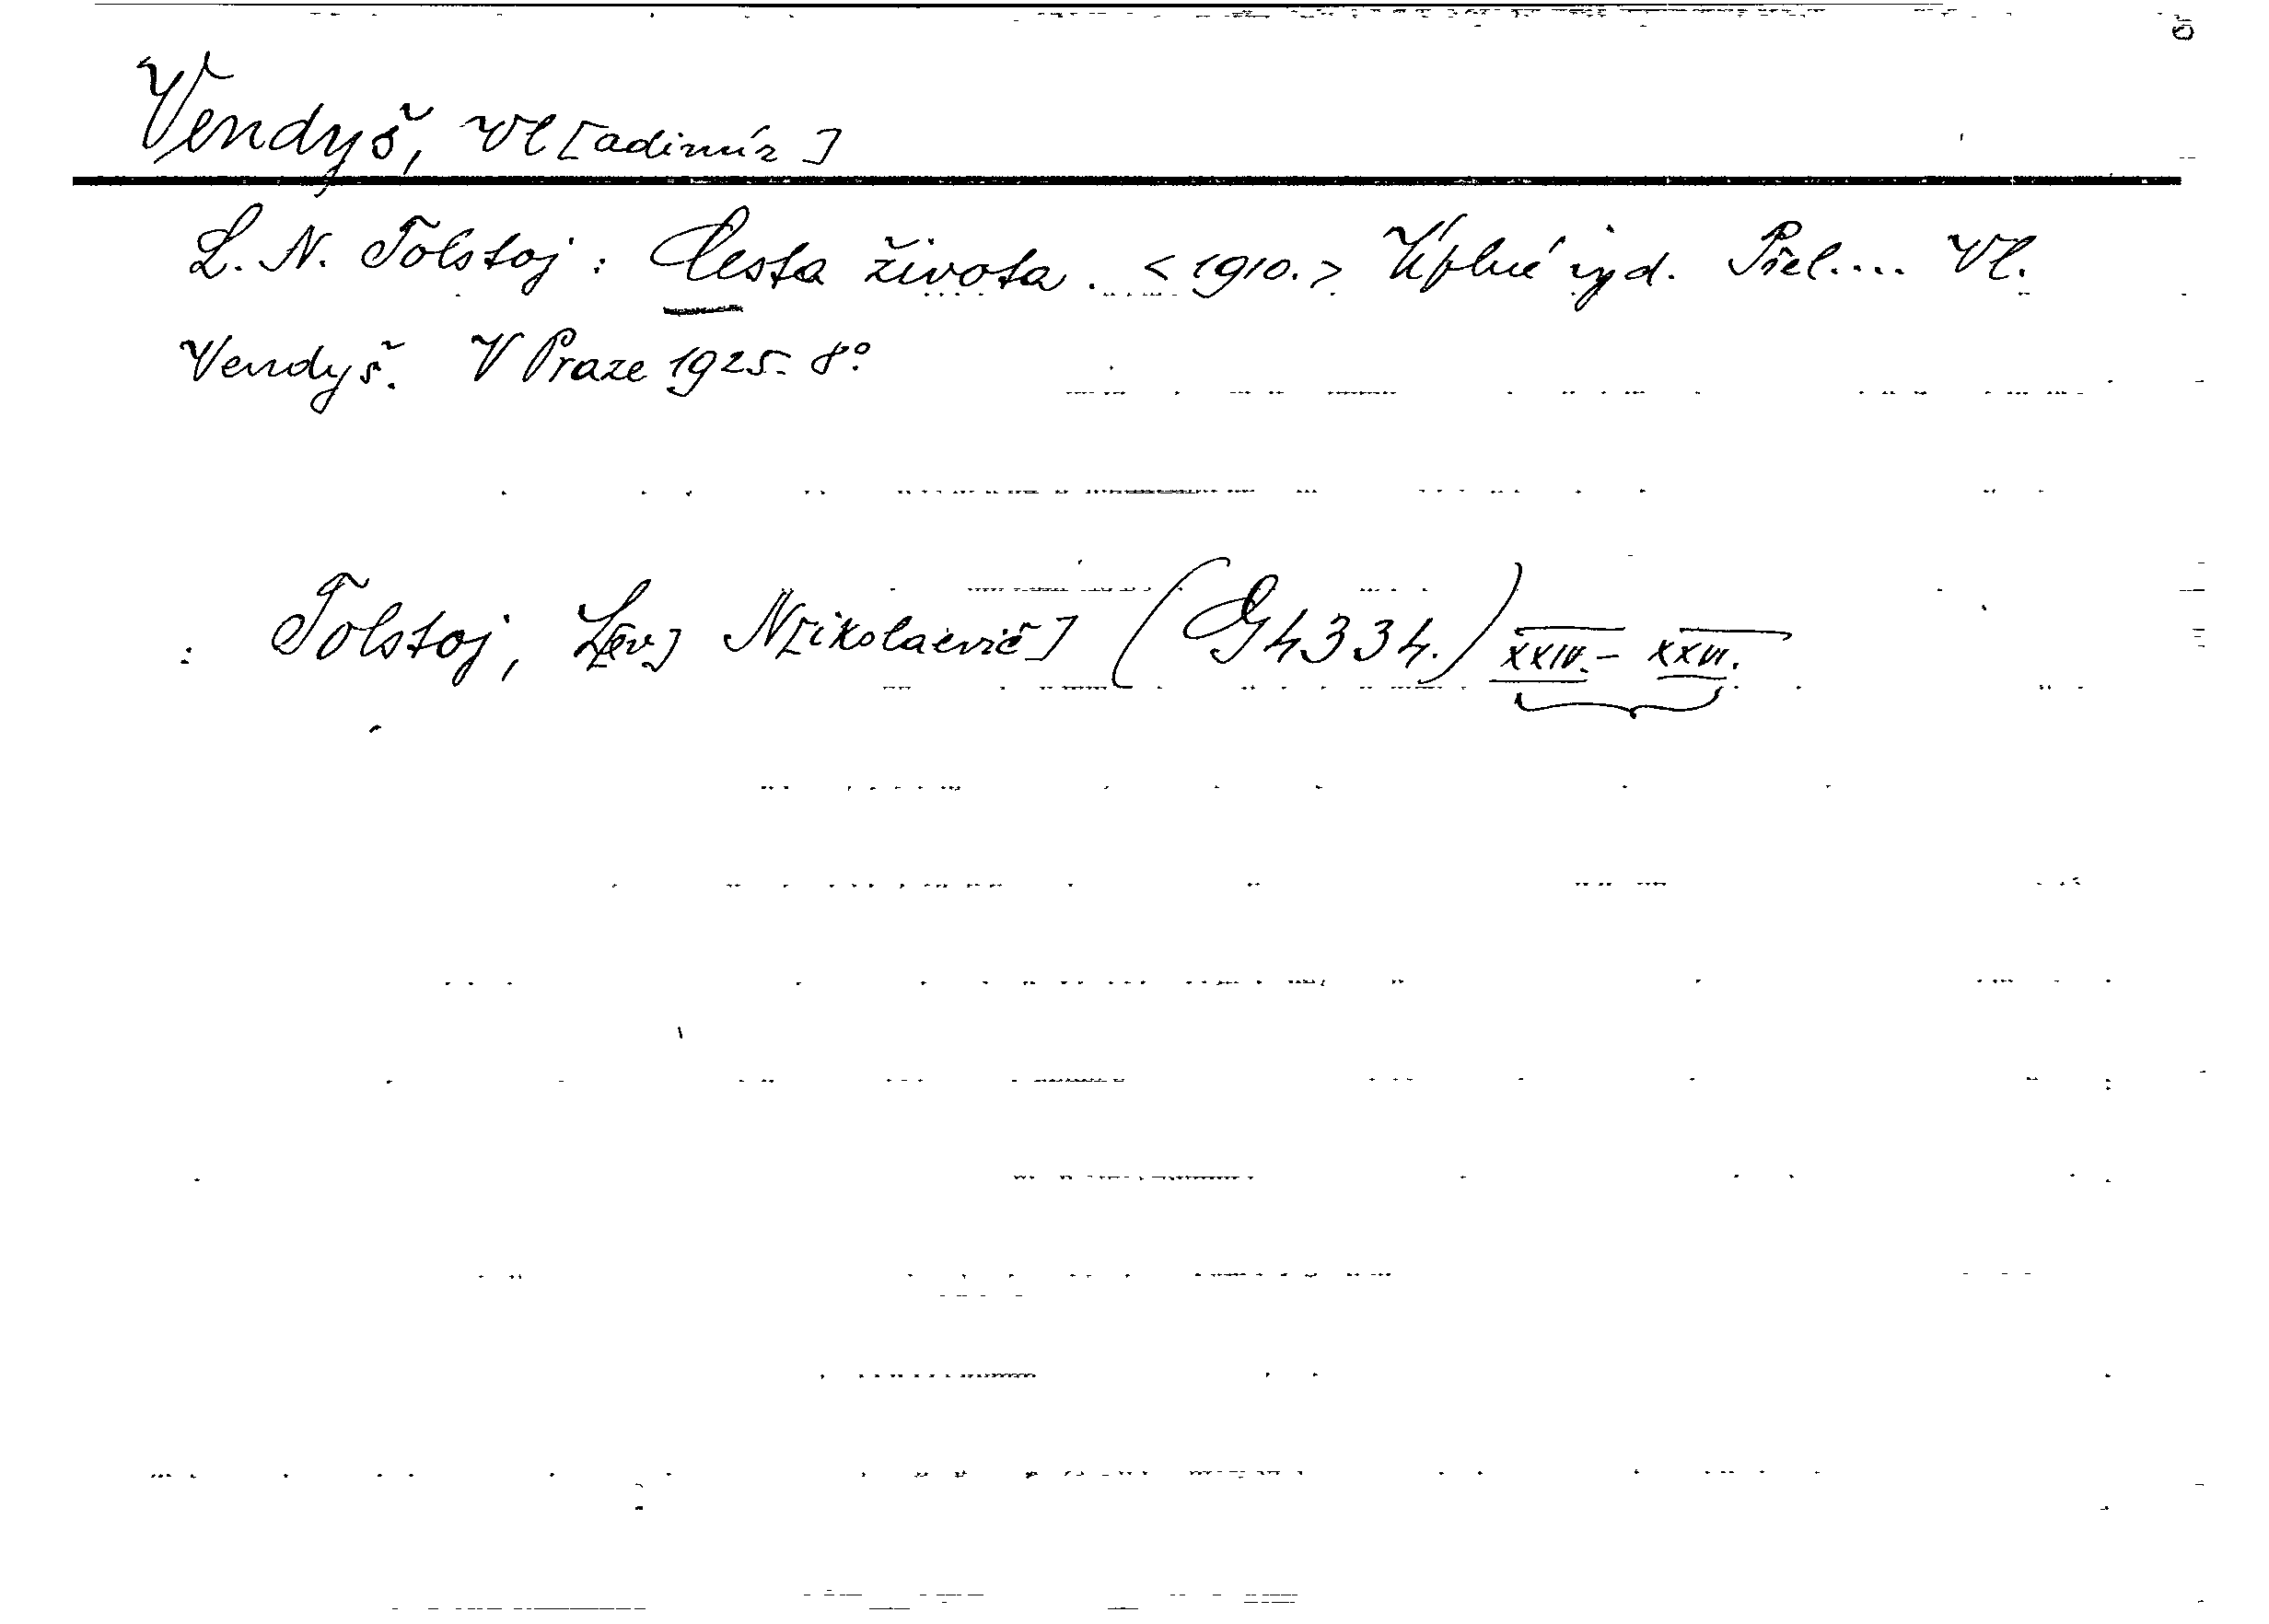 Vendyš, Vl[adimír]
L. N. Tolstoj : Cesta života. <1910.> Úplné vyd. Přel.... Vl.
Vendyš. V Praze 1925. 8º.
: Tolstoj, L[ev] N[ikolaevič] (G 4334.) XXIV. - XXVI.